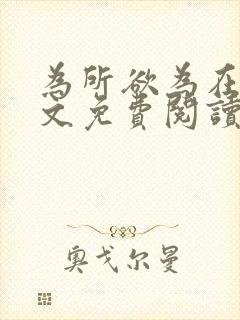 為所欲為在
文免費閱讀
奧戈尔曼